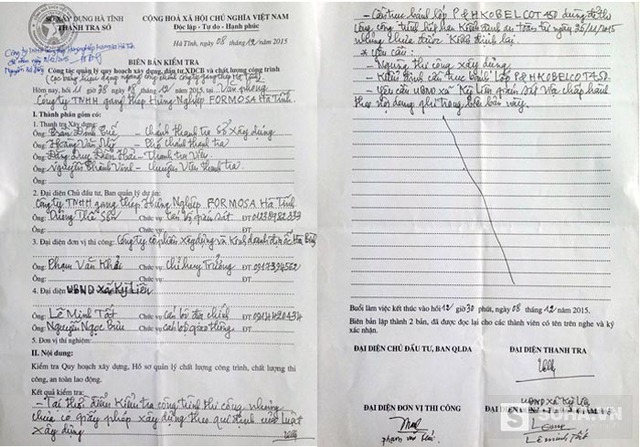 SỞ XÂY DỰNG HÀ TĨNH
THANH TRA SỞ
CỘNG HOÀ XÃ HỘI CHỦ NGHĨA VIỆT NAM
Độc lập - Tự do - Hạnh phúc
Hà Tĩnh, ngày 08 tháng 12/2015
BIÊN BẢN KIỂM TRA
Công tác quản lý quy hoạch xây dựng, đầu tư XDCB và chất lượng công trình
Hôm nay, 11 ngày 08 /12 năm 2015, tại Văn phòng
Công ty TNHH gang thép Hưng Nghiệp FORMOSA Hà Tĩnh
I. Thành phần gồm có:
1. Thanh tra Xây dựng:
Ông: Trần Đình - Chánh thanh tra Sở Xây dựng
Ông: Hoàng Văn - Phó chánh thanh tra
Ông: Đặng Duy - Thanh tra viên
Ông: Nguyễn Thành Vinh - Chuyên viên thanh tra
2. Đại diện Chủ đầu tư, Ban quản lý dự án:
Công ty TNHH gang thép Hưng Nghiệp FORMOSA Hà Tĩnh
Ông: Dương Thái Chức vụ: cán bộ giám sát ĐT
3. Đại diện đơn vị thi công: Công ty cổ phần xây dựng và Kinh doanh
Ông: Phạm Văn Khải Chức vụ: Chỉ huy trưởng ĐT 0917394562
4. Đại diện UBND xã Kỳ Liên
Ông: Lê Minh Tốt cán bộ địa chính ĐT
Ông: Nguyễn Ngọc cán bộ giao thông ĐT
5. Đơn vị thí nghiệm:
II. Nội dung:
Kiểm tra Quy hoạch xây dựng, Hồ sơ quản lý chất lượng công trình, chất lượng thi
công, an toàn lao động.
Kết quả kiểm tra:
- Tại thời điểm kiểm tra công trình thi công nhưng
chưa có giấy phép xây dựng theo quy định của luật
xây dựng
- Cần trục bánh lốp P&H KOBELCO T450 dùng để thi
công công trình hết hạn kiểm định an toàn từ ngày 26/11/2015
nhưng chưa được kiểm định lại.
* Yêu cầu:
- Ngừng thi công xây dựng.
- Kiểm định cần trục bánh lốp P&H KOBELCO T450.
- Yêu cầu UBND xã Kỳ Liên giám sát việc chấp hành
theo nội dung ghi trong biên bản này.
Buổi làm việc kết thúc vào hồi 12 giờ 30 phút, ngày 08 /12/2015.
Biên bản lập thành 2 bản, đã được đọc lại cho các thành viên có tên trên nghe và ký
xác nhận.
ĐẠI DIỆN CHỦ ĐẦU TƯ, BAN QLDA
ĐẠI DIỆN THANH TRA
ĐẠI DIỆN ĐƠN VỊ THI CÔNG
UBND xã Kỳ Liên
Lê Minh Tốt
SOHA.VN